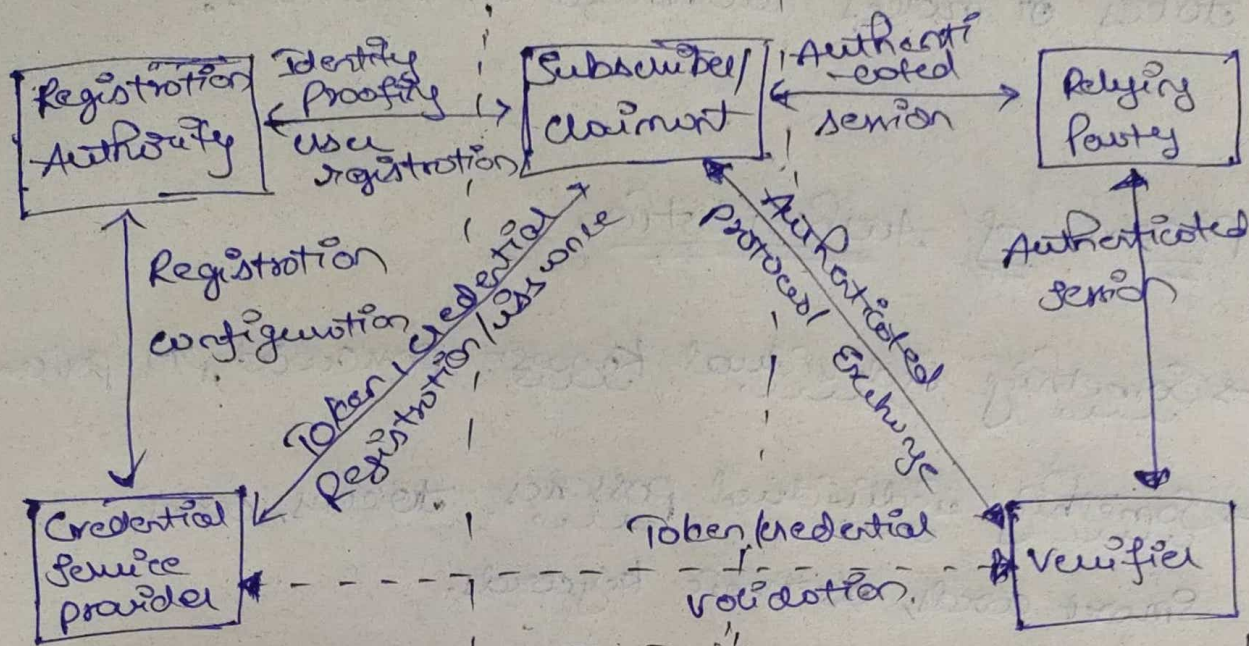 Registration
Authority
Identity
Proofing
user
registration
Subscriber/
claimant
Authenti
-cated
session
Relying
Party
Registration
configuration
Token, credential
Registration/issuance
Authenticated
Protocol
Exchange
Authenticated
session
Credential
service
provider
Token/credential
validation.
Verifier